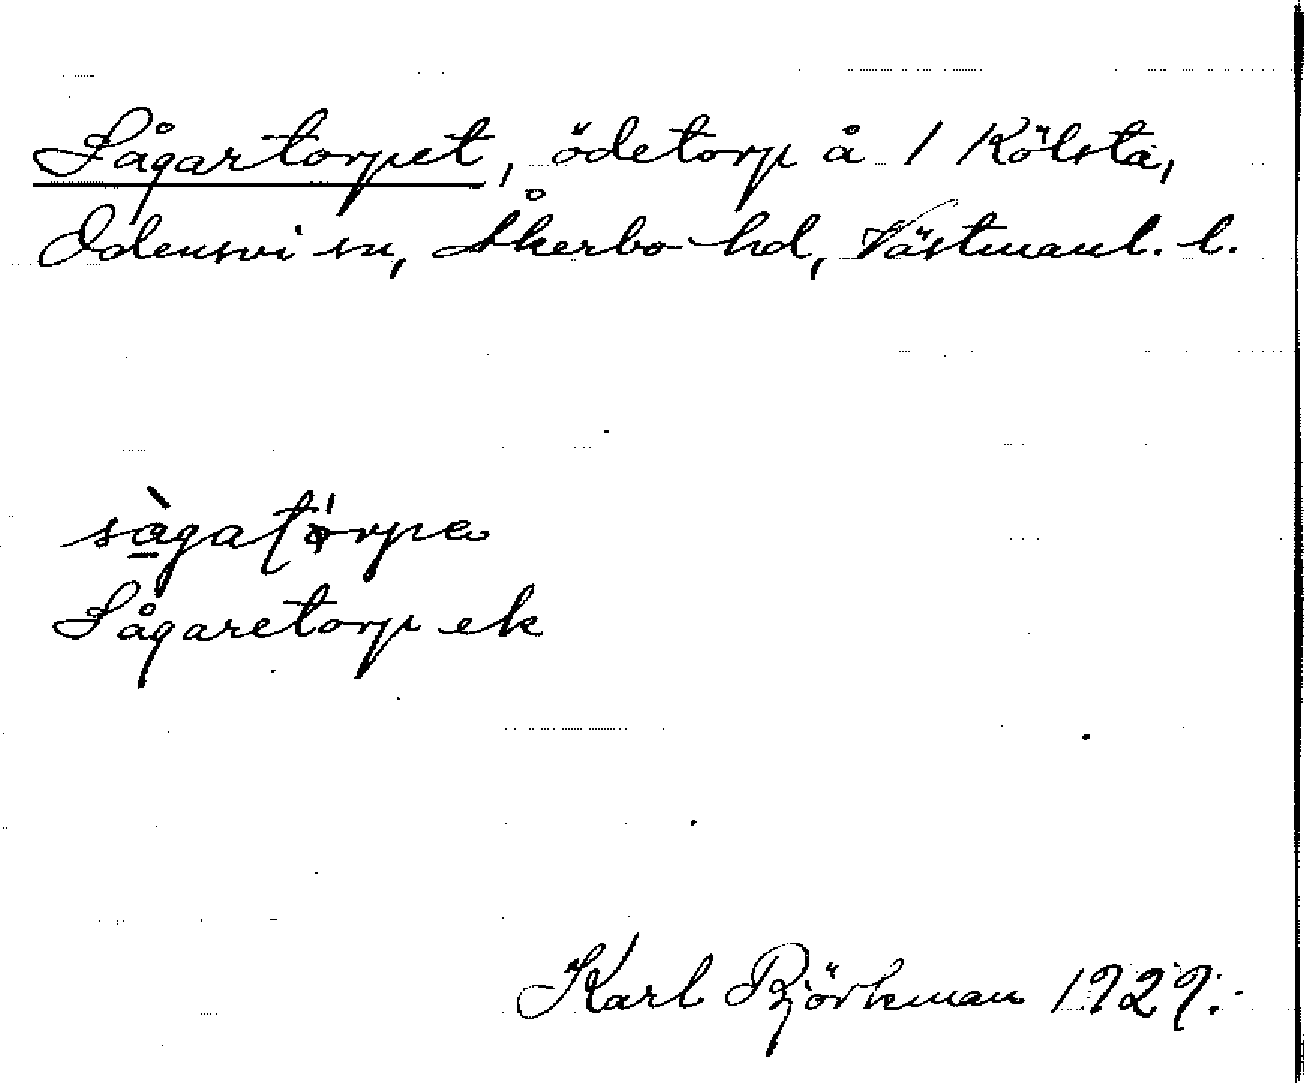 Sågartorpet, ödetorp å 1 Kölsta,
Odensvi sn, Åkerbo hd, Västmanl. l.
sàgatórpe
Sågaretorp ek
Karl Björkman 1929.-